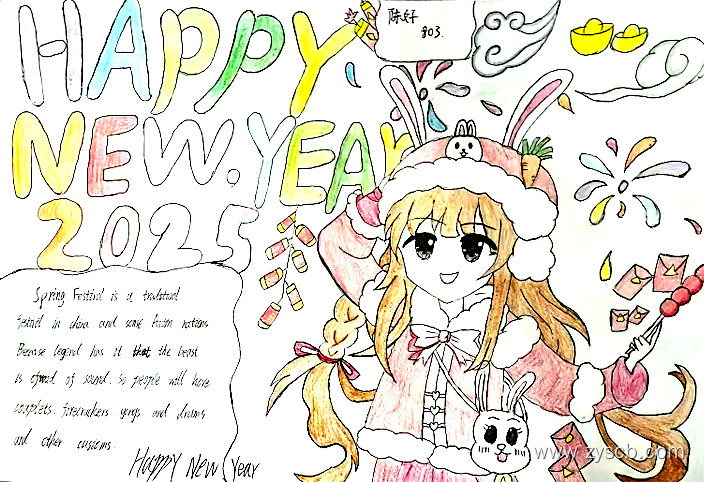 HAPPY
陈好
803.
NEW.YEAR
2025
Spring Festival is a traditional
festival in china and some Asian nations.
Because legend has it that the beast
is afraid of sound. so people will have
couplets. firecrackers gongs and drums
and other customs.
Happy New Year
www.zyscb.com